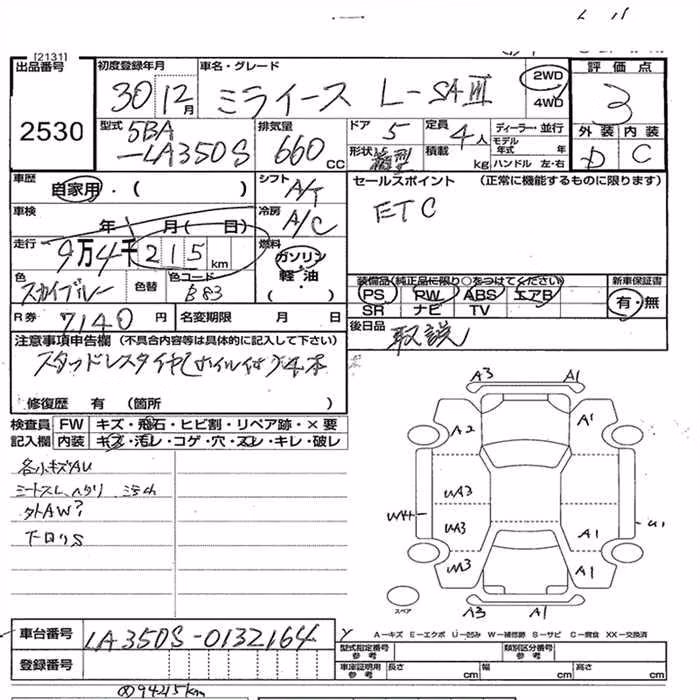 [2131]
出品番号 初度登録年月 車名・グレード 評価点
2530 30 12月 ミライース L-SAⅢ 2WD 4WD 3
型式 5BA-LA350S 排気量 660 CC ドア 5 定員 4人 ディーラー・並行 外装 内装
形状 積載 kg モデル年式 年 ハンドル 左・右 D C
車歴 自家用・( ) シフト A/T セールスポイント (正常に機能するものに限ります)
車検 年 月( 日) 冷房 A/C ETC
走行 9万4千215km 燃料 ガソリン 軽油 (・)
色 スカイブルー 色替 色コード B83
装備品(純正品に限り○をつけてください) 新車保証書
PS RW ABS エアB 有・無
SR ナビ TV
R券 7140円 名変期限 月 日 後日品 取説
注意事項申告欄 (不具合内容等は具体的に記入して下さい)
スタッドレスタイヤ(ホイル付)4本
修復歴 有 (箇所 )
検査員 FW キズ・飛石・ヒビ割・リペア跡・×要
記入欄 内装 キズ・汚レ・コゲ・穴・スレ・キレ・破レ
各小キズAU
外AW?
下回りS
A3 A1
A2 A1
WA3
W44 WA3 A1
W3 A1
スペア
A3 A1
A―キズ E―エクボ U―凹み W―補修跡 S―サビ C―腐食 XX―交換済
車台番号 LA350S-0132164
登録番号
型式指定番号 参考 類別区分番号 参考
車庫証明用 参考 長さ cm 幅 cm 高さ cm
94215km